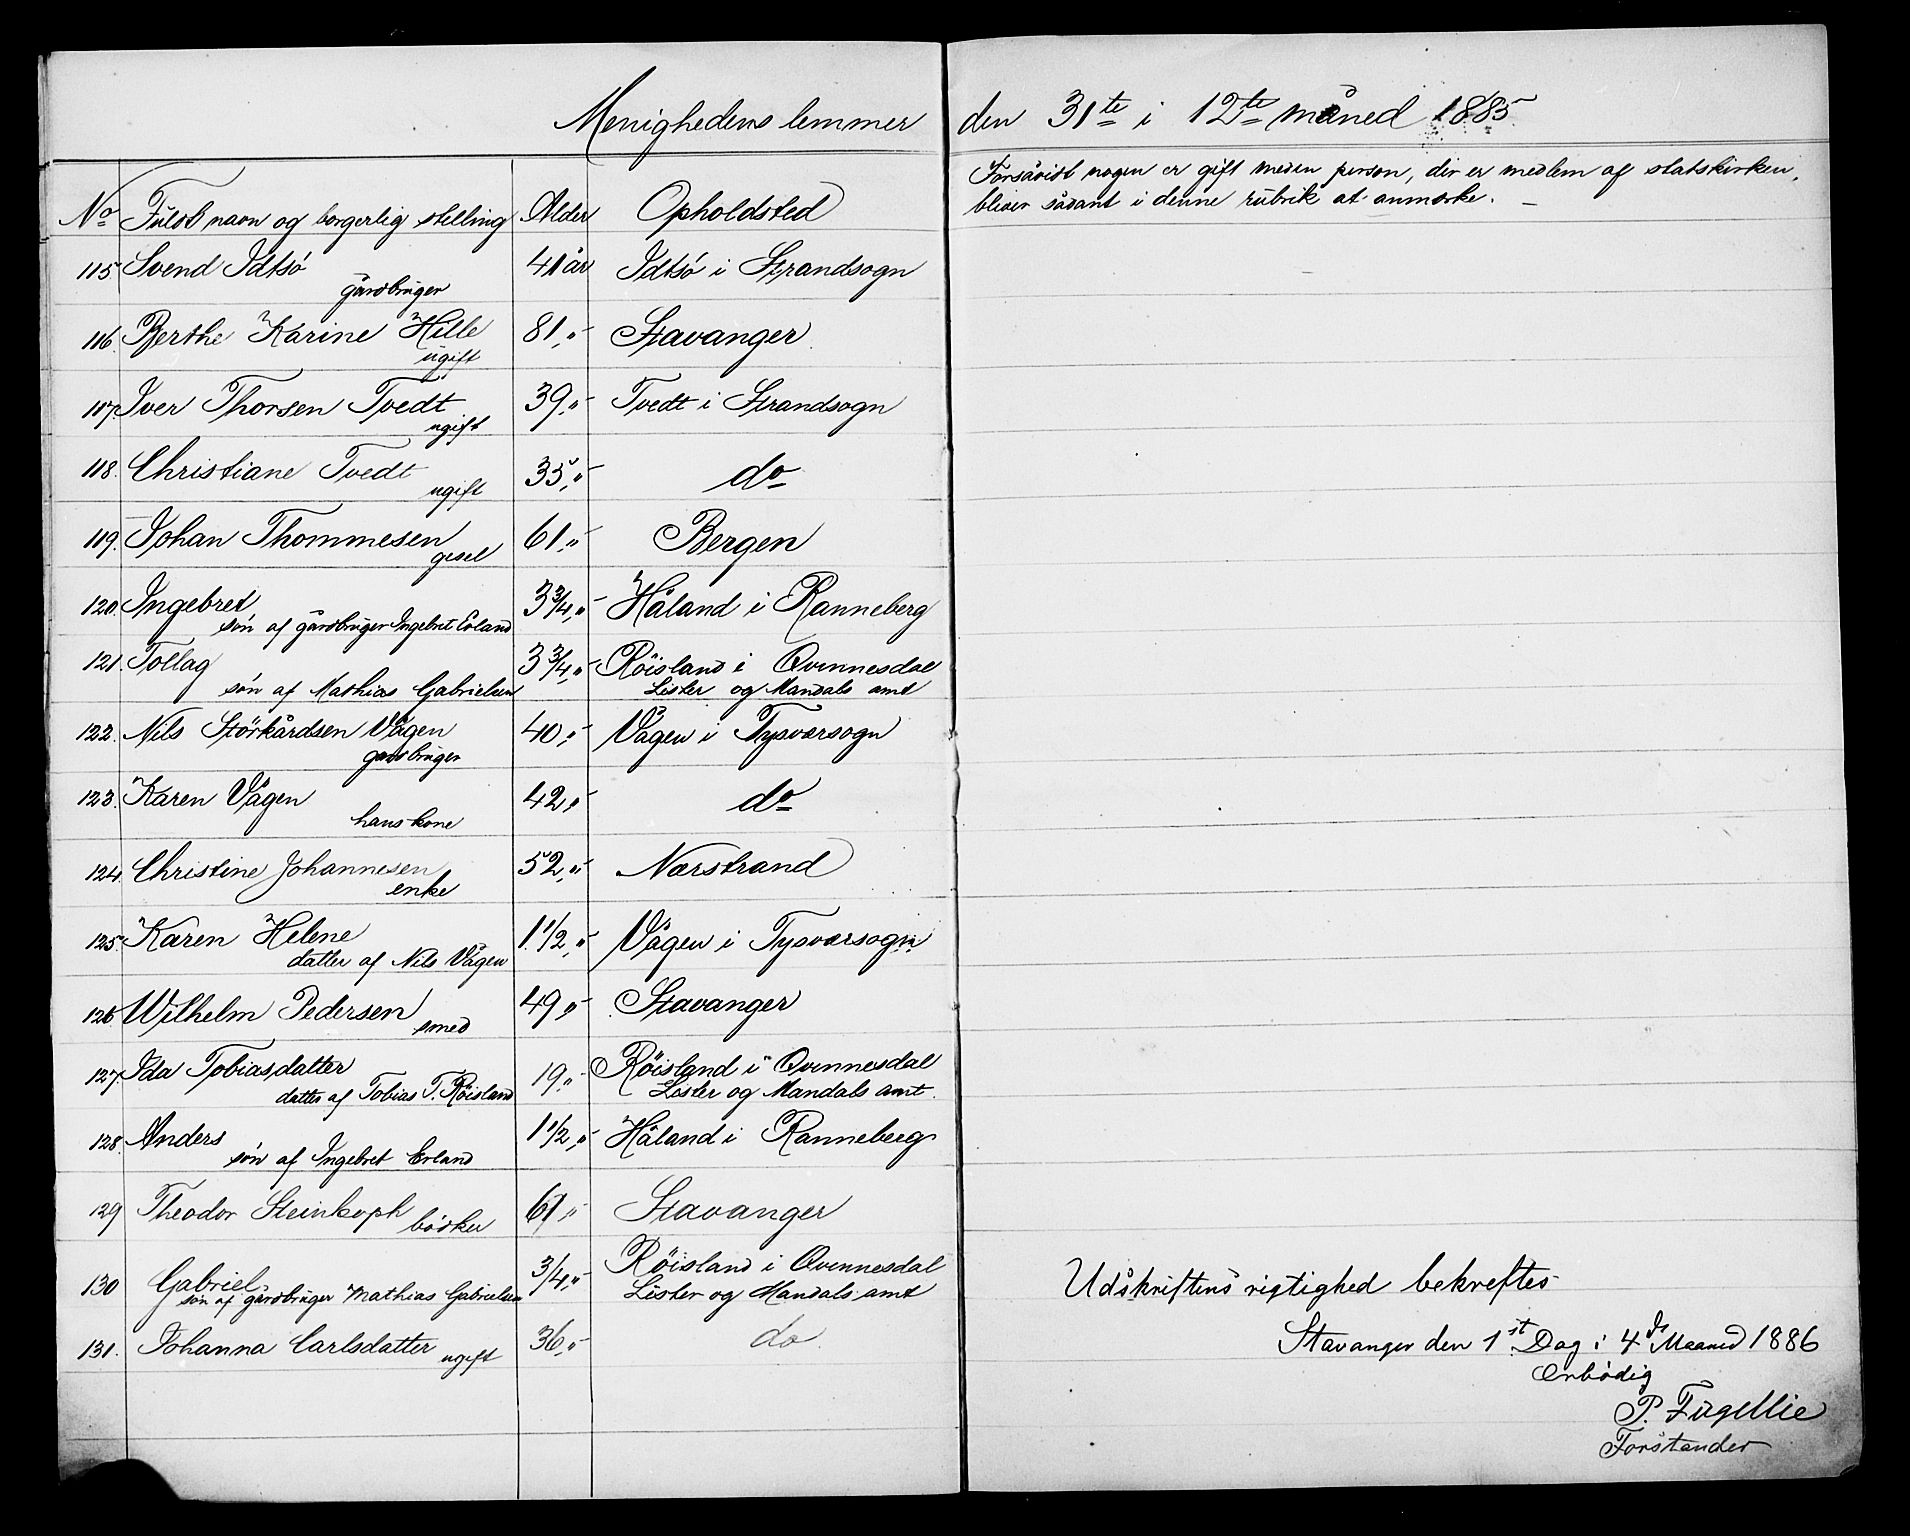 Menighedens lemmer den 31te i 12te måned 1885
No Fuldt navn og borgerlig stilling Alder Opholdsted
Forsåvidt nogen er gift med en person, der er medlem af statskirken,
bliver sådant i denne rubrik at anmærke. —
115 Svend Idtsö 41 år Idtsö i Strandsogn
gårdbruger
116. Berthe Karine Hille 81 „- Stavanger
ugift
117. Iver Thorsen Tvedt 39 „- Tvedt i Strandsogn
ugift
118. Christiane Tvedt 35 „- do
ugift
119. Johan Thommesen 61 „- Bergen
gesel
120. Ingebret 3 3/4 „- Håland i Ranneberg
søn af gårdbruger Ingebret Erland
121. Tollag 3 3/4 „- Röisland i Qvinnesdal
søn af Mathias Gabrielsen Lister og Mandals amt
122. Nils Störkårdsen Vågen 40 „- Vågen i Tysværsogn
gårdbruger
123. Karen Vågen 42 „- do
hans kone
124. Christine Johannesen 52 „- Nærstrand
enke
125. Karen Helene 1 1/2 „- Vågen i Tysværsogn
datter af Nils Vågen
126 Wilhelm Pedersen 49 „- Stavanger
smed
127. Ida Tobiasdatter 19 „- Röisland i Qvinnesdal
datter af Tobias T. Röisland Lister og Mandals amt.
128. Anders 1 1/2 „- Håland i Ranneberg
søn af Ingebret Erland
129 Theodor Steinkoph 61 „- Stavanger
bödker
130 Gabriel 3/4 „- Röisland i Qvinnesdal
søn af gårdbruger Mathias Gabrielsen Lister og Mandals amt
131. Johanna Carlsdatter 36 „- do
ugift
Udskriftens rigtighed bekreftes
Stavanger den 1st Dag i 4de Maaned 1886
Erbödig
P. Fugellie
Forstander